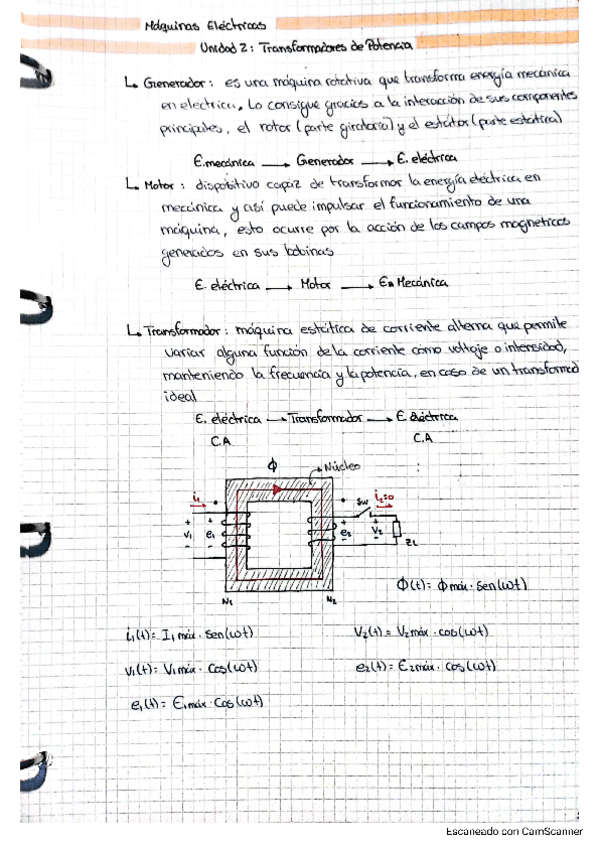 Máquinas Eléctricas
Unidad 2: Transformadores de Potencia
↳ Generador: es una máquina rotativa que transforma energía mecánica
en electrica. Lo consigue gracias a la interacción de sus componentes
principales, el rotor (parte giratoria) y el estátor (parte estatica)
E.mecánica → Generador → E. eléctrica
↳ Motor: dispositivo capaz de transformar la energía eléctrica en
mecánica y así puede impulsar el funcionamiento de una
máquina, esto ocurre por la acción de los campos magneticos
generados en sus bobinas
E. eléctrica → Motor → En Mecánica
↳ Transformador: máquina estática de corriente alterna que permite
variar alguna función de la corriente como voltaje o intensidad,
manteniendo la frecuencia y la potencia, en caso de un transformad
ideal
E. eléctrica → Transformador → E. Eléctrica
C.A C.A
ϕ → Núcleo
i₁ SW i₂=0
+ + + +
V₁ e₁ e₂ V₂ ZL
- - - -
N₁ N₂
ϕ(t)= ϕmáx · sen(ωt)
i₁(t)= I₁máx · sen(ωt) V₂(t)= V₂máx · cos(ωt)
v₁(t)= V₁máx · Cos(ωt) e₂(t)= E₂máx · Cos(ωt)
e₁(t)= E₁máx · Cos(ωt)
Escaneado con CamScanner